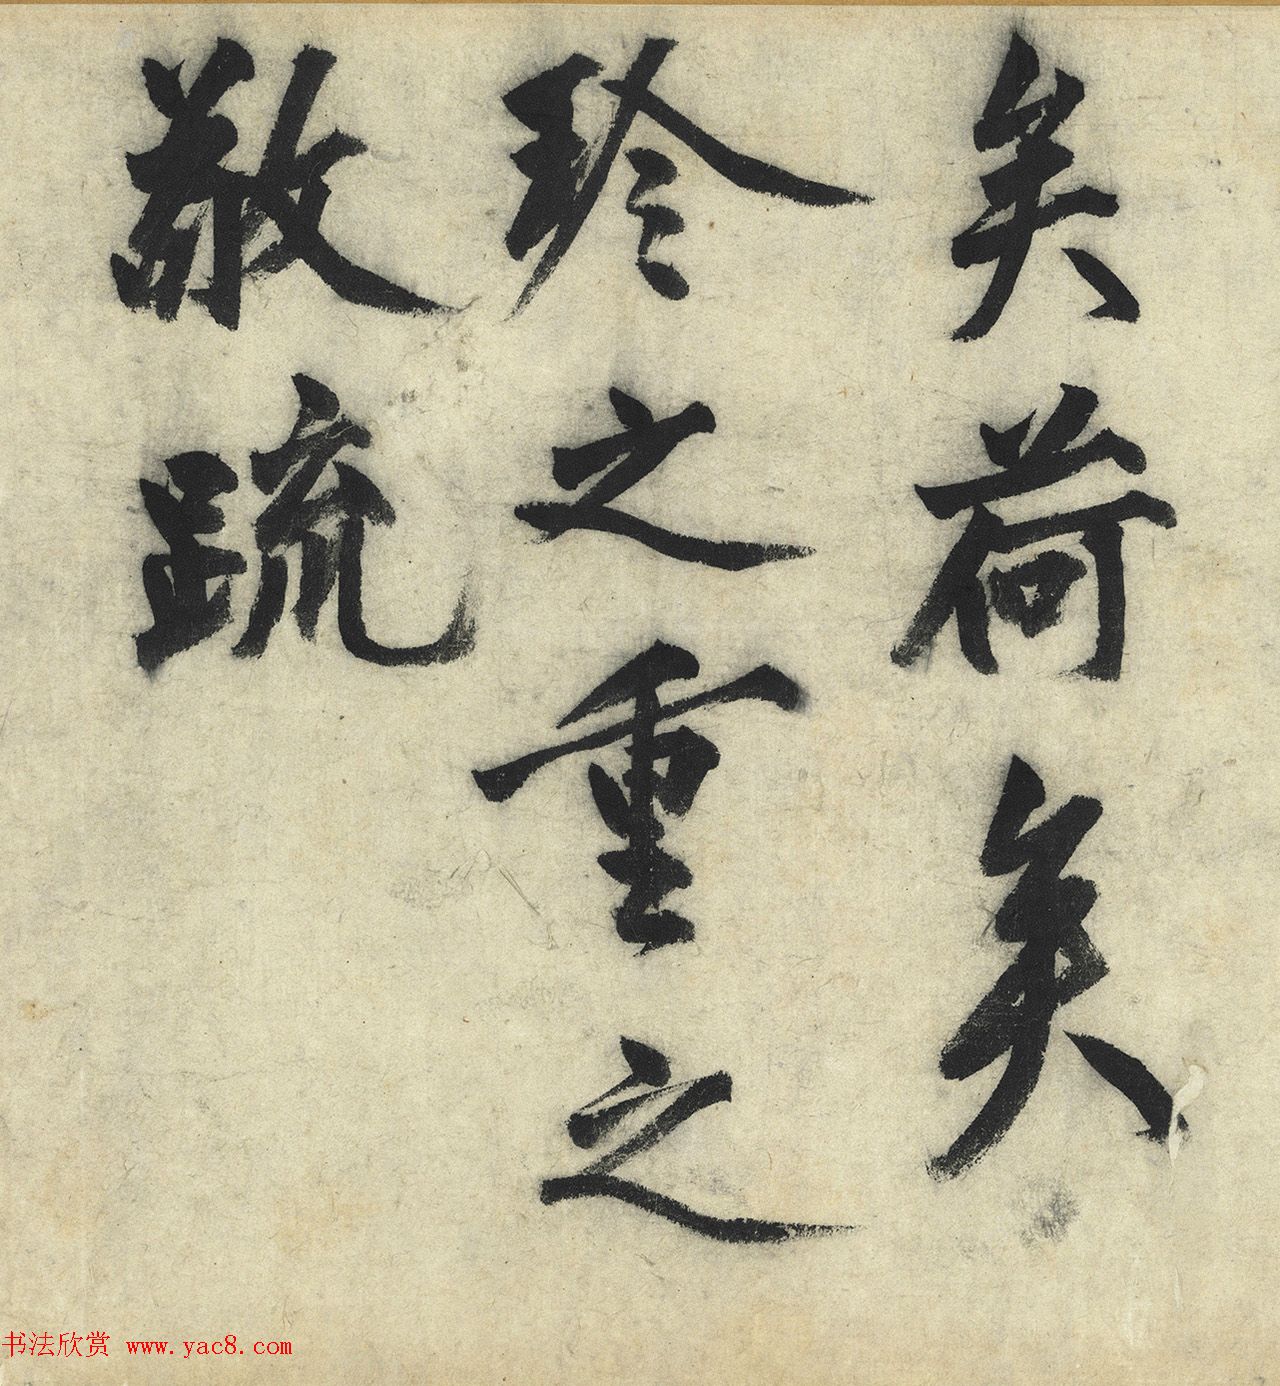 矣荷矣
珎之重之
敬疏
书法欣赏 www.yac8.com